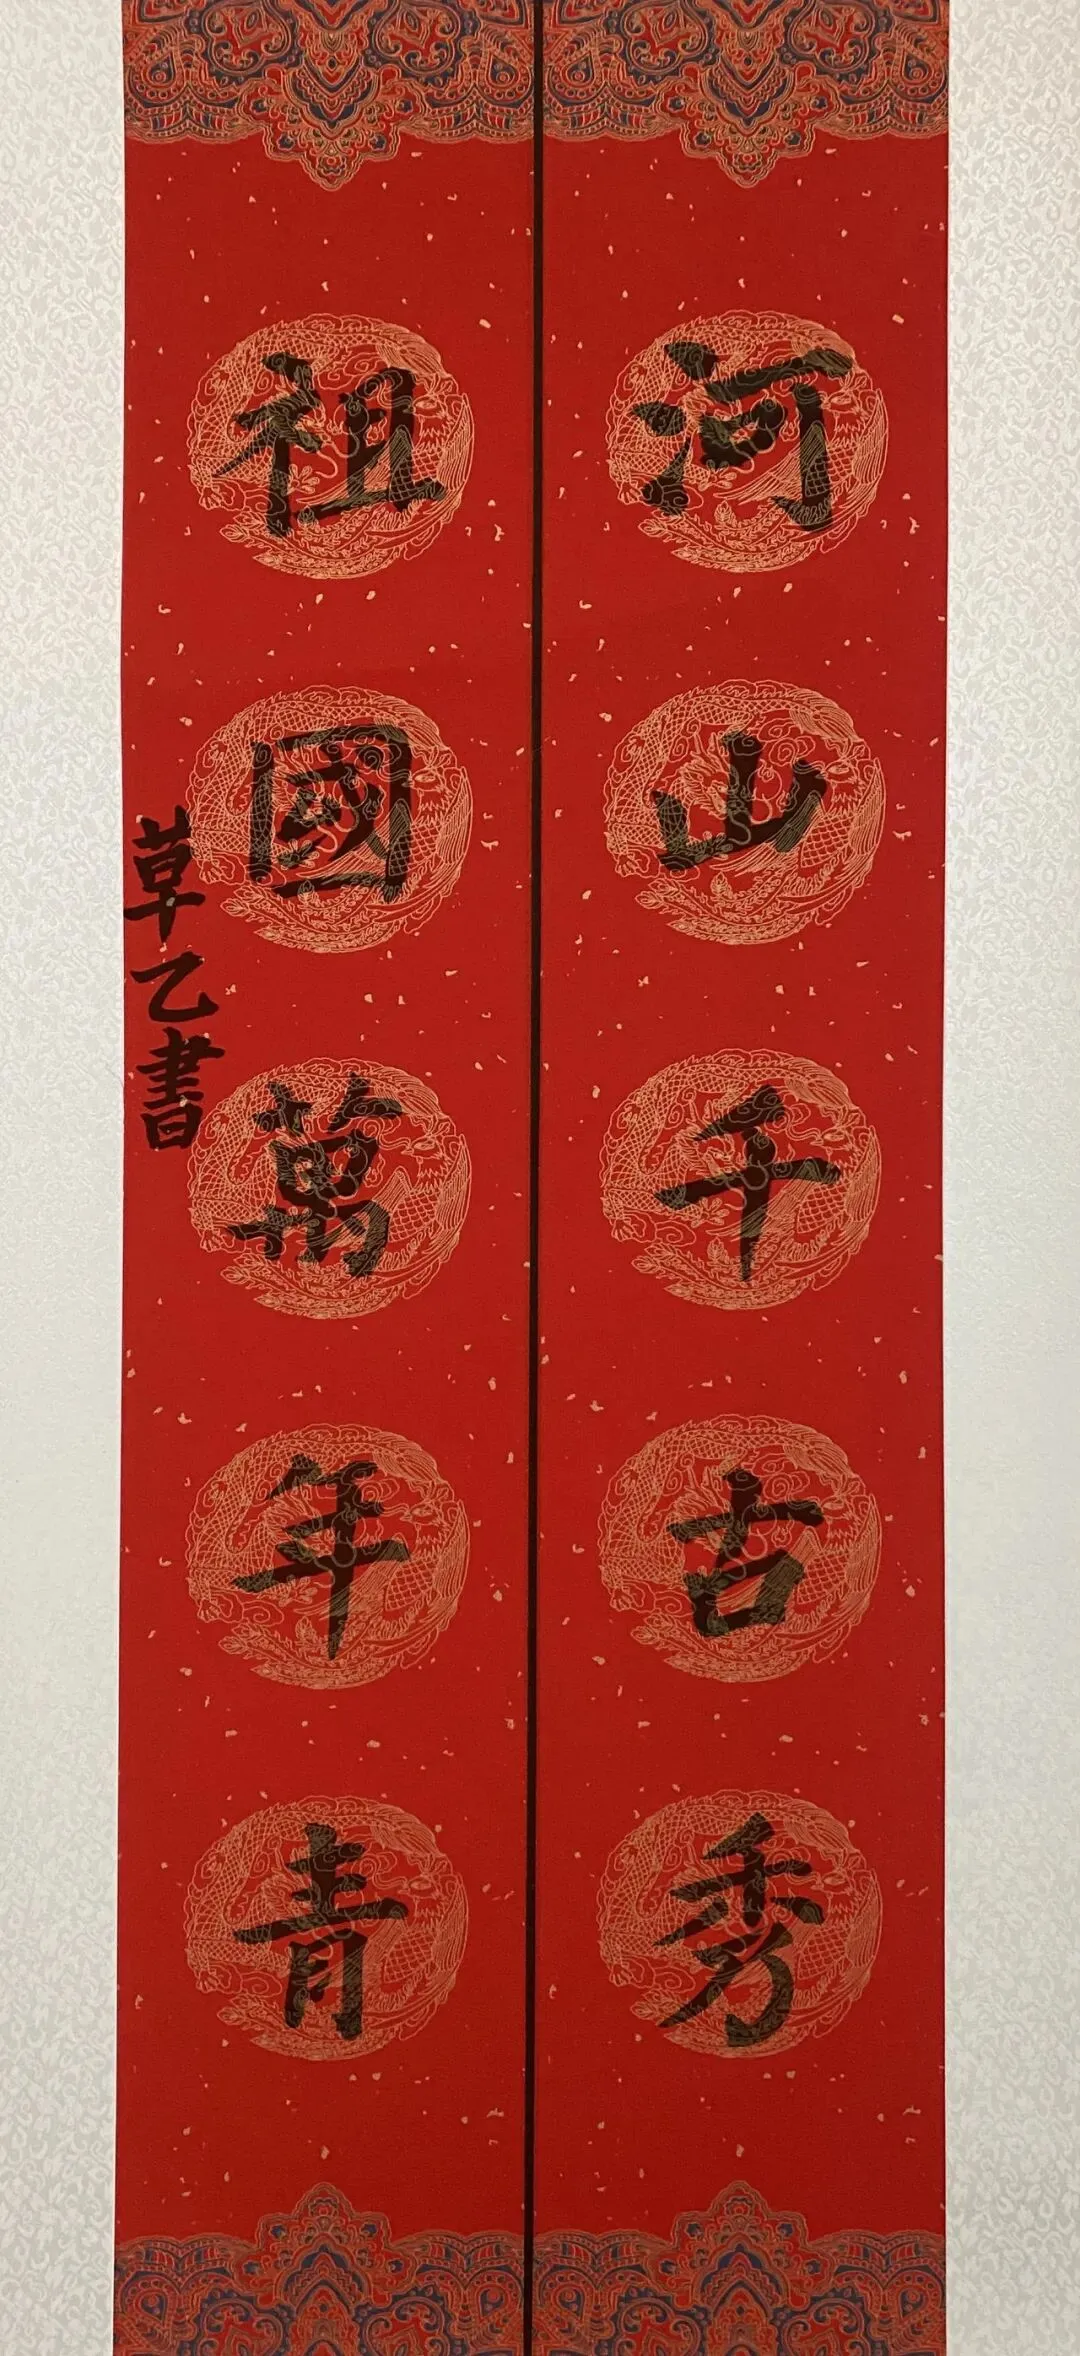 河山千古秀
祖國萬年青
草乙書